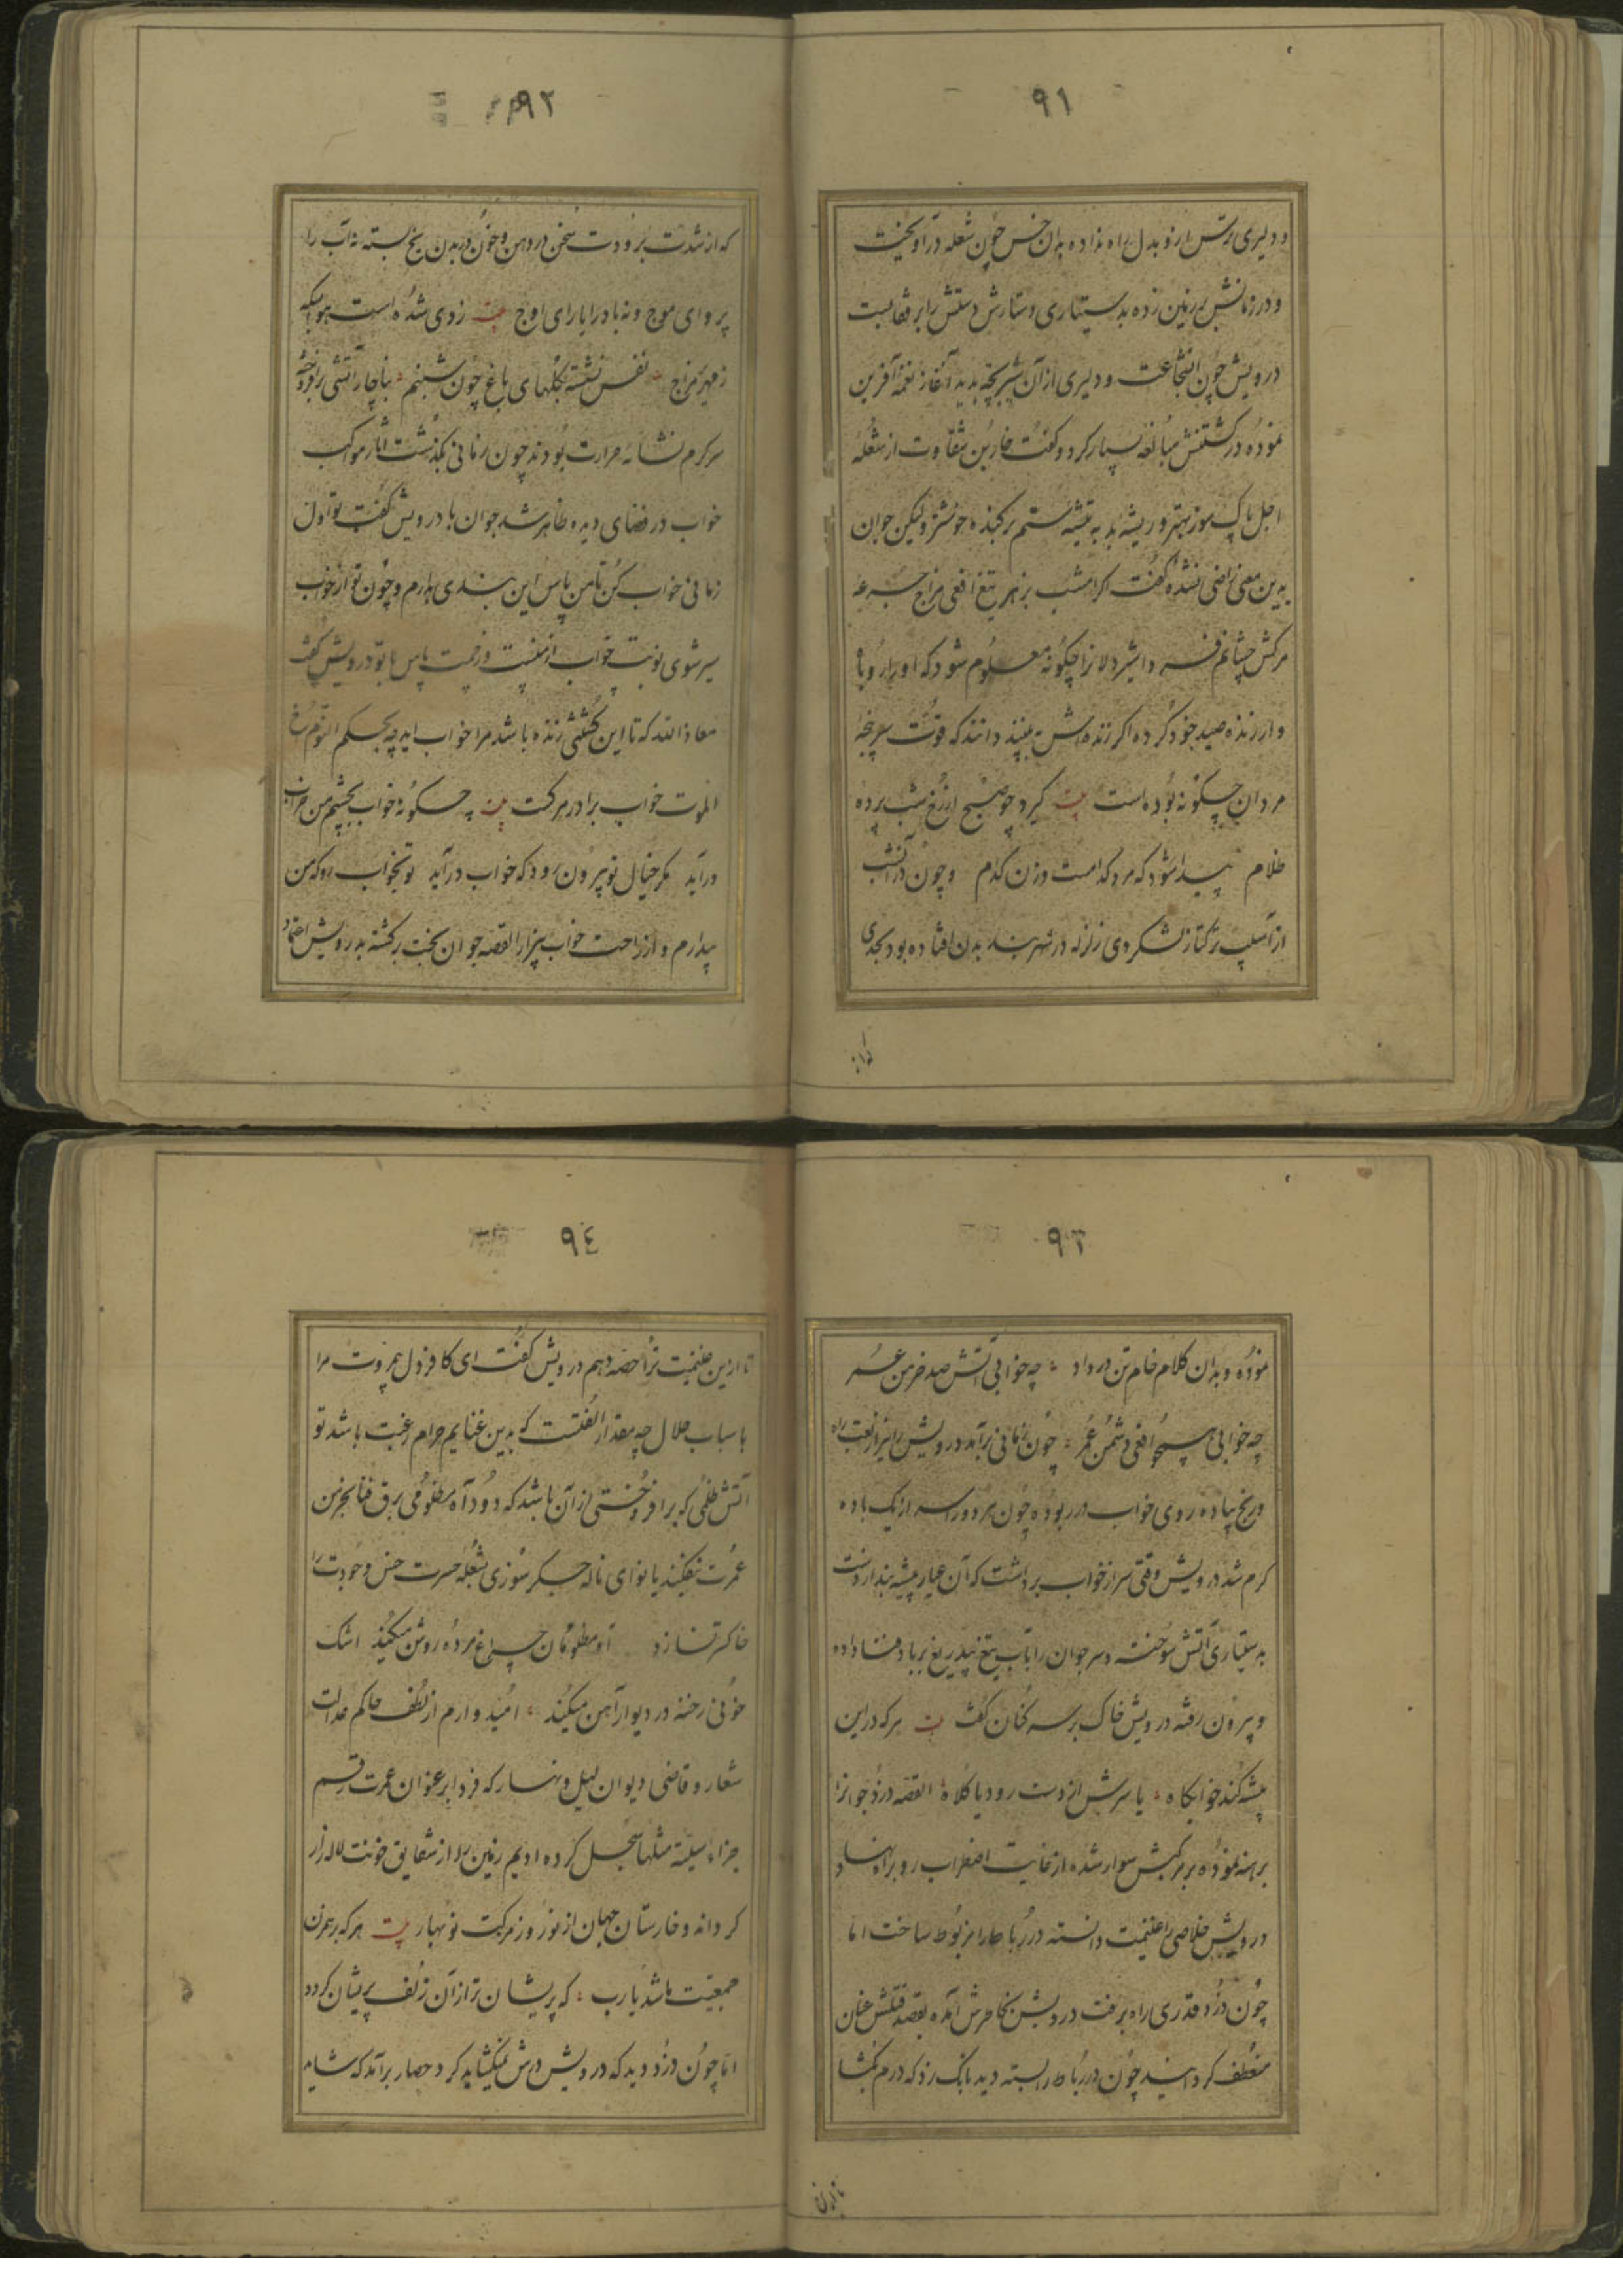 ٩١
و دلیری ترس ازو بدل راه نداده بدان خس چون شعله درآویخت
و در زمانش بر زمین زده بدستیاری دستارش دستش را بر قفا بست
درویش چون شجاعت و دلیری از آن شیربچه بدید آغاز نغمه آفرین
نموده در کشتنش مبالغه بسیار کرد و گفت خاربن شقاوت از شعله
اجل پاک سوز بهتر و ریشه بد به تیشه ستم برکنده خوشتر ولیکن جوان
بدین معنی راضی نشده گفت اگر امشب بزهر تیغ افعی مزاج جرعه
مرگش چشانم فردا شیردلانرا چگونه معلوم شود که او را روباه
وار زنده صید خود کرده اگر زنده‌اش بینند دانند که قوت سرپنجه
مردان چگونه بوده است بیت گیرد چو صبح از رخ شب پرده
ظلام پیدا شود که مرد کدامست و زن کدام و چون در آنشب
از آسیب ترکتاز لشکر دی زلزله در شهربند بدن افتاده بود بحدی
که از
٩٢
که از شدت برودت سخن در دهن و خون در بدن یخ بسته نه آب را
پروای موج و نه باد را یارای اوج بیت ز دی شده است هوا بسکه
زمهریر مزاج نفس نشسته بگلهای باغ چون شبنم ناچار آتشی برافروخته
سرگرم نشاء حرارت بودند چون زمانی بگذشت آثار موکب
خواب در فضای دیده ظاهر شد جوان با درویش گفت تو اول
زمانی خواب کن تا من پاس این بندی بدارم و چون تو از خواب
سیر شوی نوبت خواب از منست و زحمت پاس با تو درویش گفت
معاذالله که تا این کشتنی زنده باشد مرا خواب آید چه بحکم النوم اخ
الموت خواب برادر مرگست بیت چگونه خواب بچشم من خراب
درآید مگر خیال تو بیرون رود که خواب درآید تو بخواب رو که من
بیدارم و از راحت خواب بیزار القصه جوان بخت برگشته بدرویش اعتماد
٩٣
نموده و بدان کلام خام تن درداد چه خوابی آتش صد خرمن عمر
چه خوابی همچو افعی دشمن عمر چون زمانی برآمد درویش را نیز از تعب راه
و رنج پیاده روی خواب در ربوده چون هر دو را سر از یک باده
گرم شد درویش وقتی سر از خواب برداشت که آن عیار پیشه بند از دست
بدستیاری آتش سوخته و سر جوان را بآب تیغ بیدریغ بر باد فنا داده
و بیرون رفته درویش خاک بر سر کنان گفت بیت هر که در این
بیشه کند خوابگاه یا سرش از دست رود یا کلاه القصه دزد جوانرا
برهنه نموده بر مرکبش سوار شده از غایت اضطراب رو براه نهاد
درویش خلاصی را غنیمت دانسته در رباط را مربوط ساخت اما
چون دزد قدری راه برفت درویش بخاطرش آمده بقصد قتلش عنان
منعطف گردانید چون در رباط را بسته دید بانگ زد که درم بگشا
تا از این
٩٤
تا از این غنیمت ترا حصه دهم درویش گفت ای کافر دل بی مروت مرا
باسباب حلال چه مقدار الفتست که بدین غنایم حرام رغبت باشد تو
آتش ظلمی که برافروختی از آن باشد که دود آه مظلومی برق فنا بخرمن
عمرت نیفکند یا نوای ناله جگر سوزی بشعله حسرت خس وجودت را
خاکستر نسازد آه مظلومان چراغ مرده روشن میکند اشک
خونی رخنه در دیوار آهن میکند امیدوارم از لطف حاکم عدالت
شعار و قاضی دیوان لیل و نهار که فردا بر عنوان عمرت رقم
جزاء سیئة مثلها سجل کرده ادیم زمین را از شقایق خونت لاله‌زار
گرداند و خارستان جهان از نوروز مرگت نوبهار بیت هر که برهمزن
جمعیت ما شد یارب که پریشان تر از آن زلف پریشان گردد
اما چون دزد دید که درویش درش نمیگشاید گرد حصار برآمد که شاید